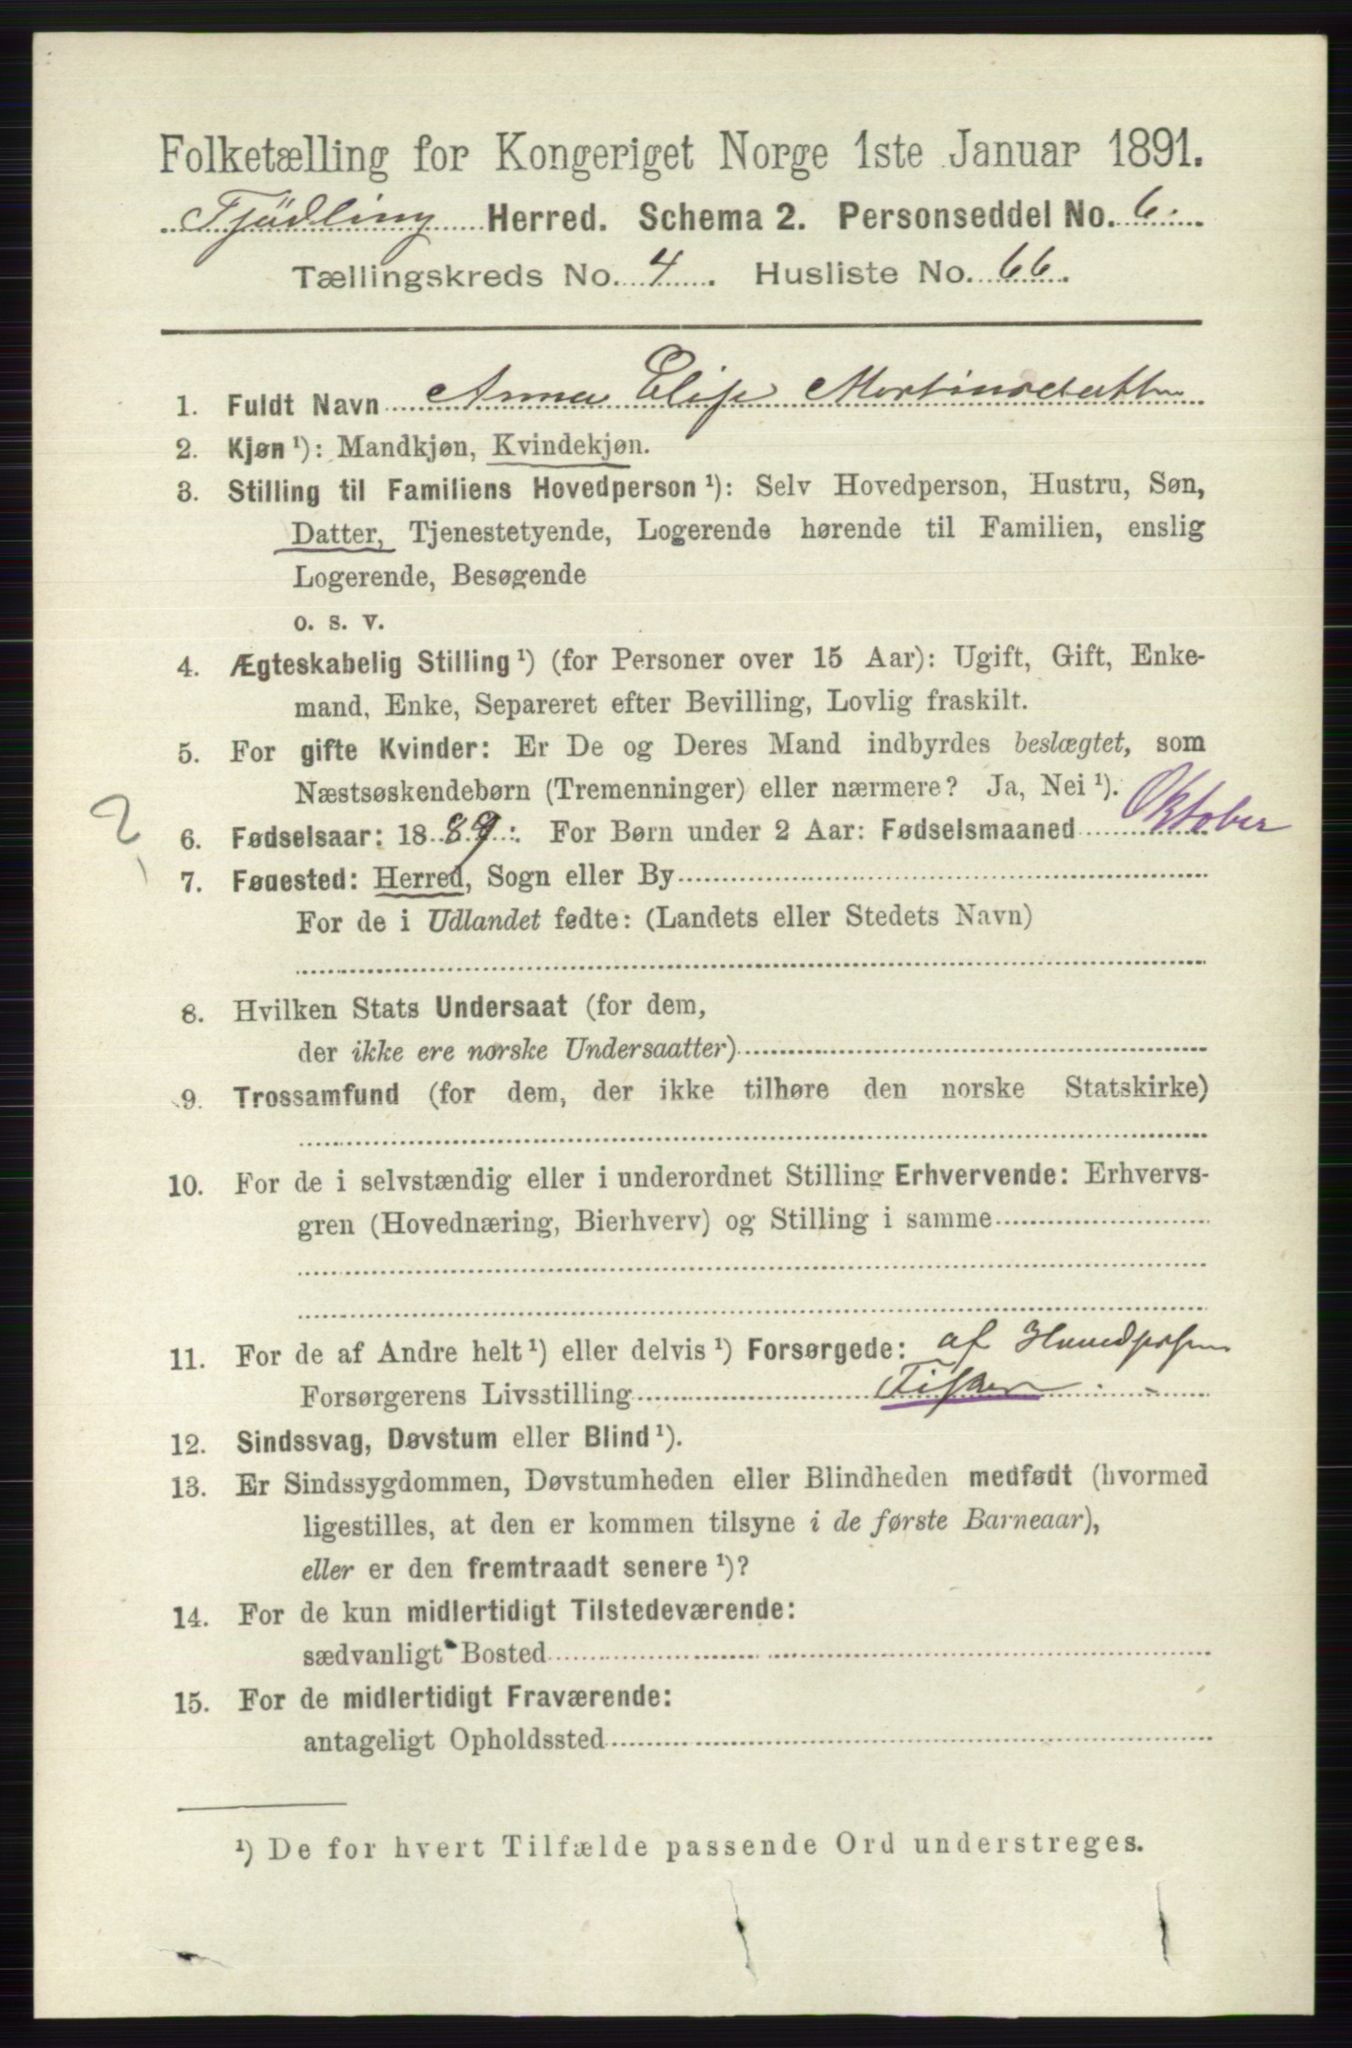 Folketælling for Kongeriget Norge 1ste Januar 1891.
Tjødling Herred. Schema 2. Personseddel No. 6.
Tællingskreds No. 4. Husliste No. 66.
1. Fuldt Navn Anna Elise Martinsdatter
2. Kjøn ¹): Mandkjøn, Kvindekjøn.
3. Stilling til Familiens Hovedperson ¹): Selv Hovedperson, Hustru, Søn,
Datter, Tjenestetyende, Logerende hørende til Familien, enslig
Logerende, Besøgende
o. s. v.
4. Ægteskabelig Stilling ¹) (for Personer over 15 Aar): Ugift, Gift, Enke-
mand, Enke, Separeret efter Bevilling, Lovlig fraskilt.
5. For gifte Kvinder: Er De og Deres Mand indbyrdes beslægtet, som
Næstsøskendebørn (Tremenninger) eller nærmere? Ja, Nei ¹).
2
6. Fødselsaar: 1889. For Børn under 2 Aar: Fødselsmaaned Oktober
7. Fødested: Herred, Sogn eller By
For de i Udlandet fødte: (Landets eller Stedets Navn)
8. Hvilken Stats Undersaat (for dem,
der ikke ere norske Undersaatter)
9. Trossamfund (for dem, der ikke tilhøre den norske Statskirke)
10. For de i selvstændig eller i underordnet Stilling Erhvervende: Erhvervs-
gren (Hovednæring, Bierhverv) og Stilling i samme
11. For de af Andre helt ¹) eller delvis ¹) Forsørgede: af
Forsørgerens Livsstilling Fisker
12. Sindssvag, Døvstum eller Blind ¹).
13. Er Sindssygdommen, Døvstumheden eller Blindheden medfødt (hvormed
ligestilles, at den er kommen tilsyne i de første Barneaar),
eller er den fremtraadt senere ¹)?
14. For de kun midlertidigt Tilstedeværende:
sædvanligt Bosted
15. For de midlertidigt Fraværende:
antageligt Opholdssted
¹) De for hvert Tilfælde passende Ord understreges.